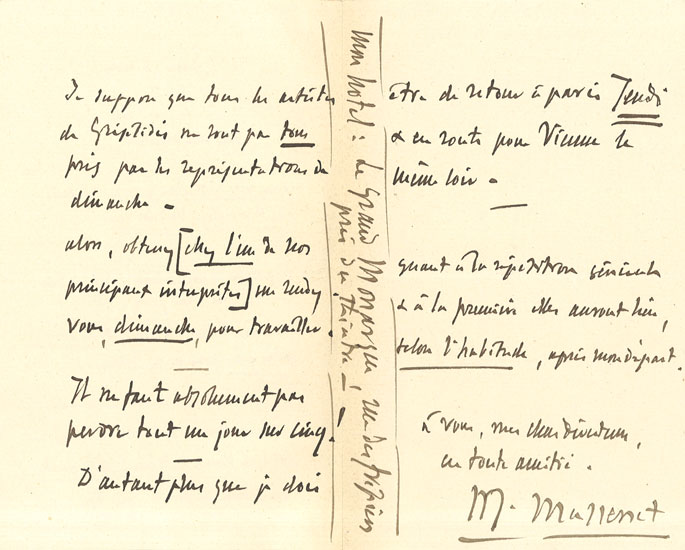 Je suppose que tous les artistes
de Grisélidis ne sont pas tous
pris par les représentations de
dimanche -
alors, obtenez [chez l'un de nos
principaux interprètes] un rendez
vous, dimanche, pour travailler.
Il ne faut absolument pas
perdre tout un jour sur cinq!
D'autant plus que je dois
mon hotel: Le Grand Monarque, rue des
près du Théâtre -
être de retour à paris Jeudi
& en route pour Vienne le
même soir -
quant à la répétition générale
& à la première elles auront lieu,
selon l'habitude, après mon départ.
à vous, mes cher directeur,
en toute amitié.
M. Massenet